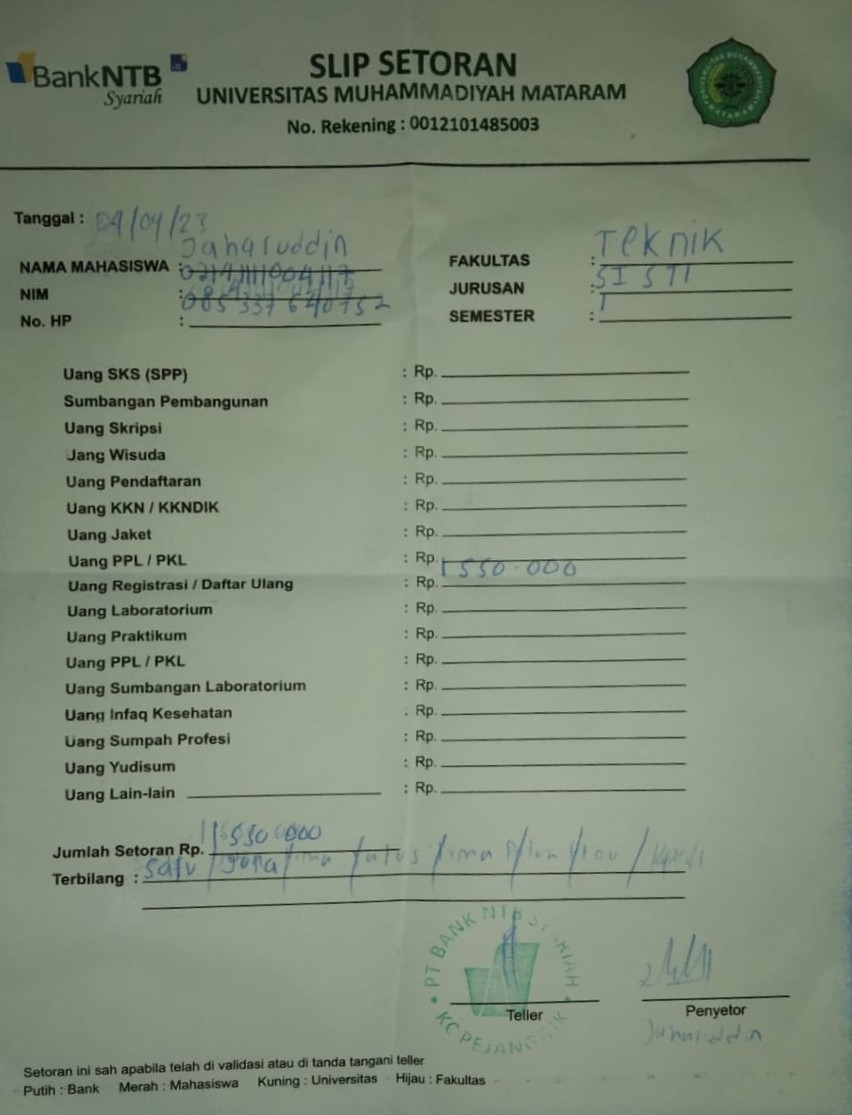 BankNTB
Syariah
SLIP SETORAN
UNIVERSITAS MUHAMMADIYAH MATARAM
No. Rekening : 0012101485003
Tanggal : 09/09/23
NAMA MAHASISWA : Jaharuddin
NIM :
No. HP : 085337640752
FAKULTAS : Teknik
JURUSAN :
SEMESTER : I
Uang SKS (SPP) : Rp.
Sumbangan Pembangunan : Rp.
Uang Skripsi : Rp.
Uang Wisuda : Rp.
Uang Pendaftaran : Rp.
Uang KKN / KKNDIK : Rp.
Uang Jaket : Rp.
Uang PPL / PKL : Rp.
Uang Registrasi / Daftar Ulang : Rp. 1 550.000
Uang Laboratorium : Rp.
Uang Praktikum : Rp.
Uang PPL / PKL : Rp.
Uang Sumbangan Laboratorium : Rp.
Uang Infaq Kesehatan : Rp.
Uang Sumpah Profesi : Rp.
Uang Yudisum : Rp.
Uang Lain-lain : Rp.
Jumlah Setoran Rp. 1 550 000
Terbilang : Satu juta lima ratus lima puluh ribu
PT BANK NTB SYARIAH
KC PEJANGGIK
Teller
Penyetor
Jaharuddin
Setoran ini sah apabila telah di validasi atau di tanda tangani teller
Putih : Bank Merah : Mahasiswa Kuning : Universitas Hijau : Fakultas